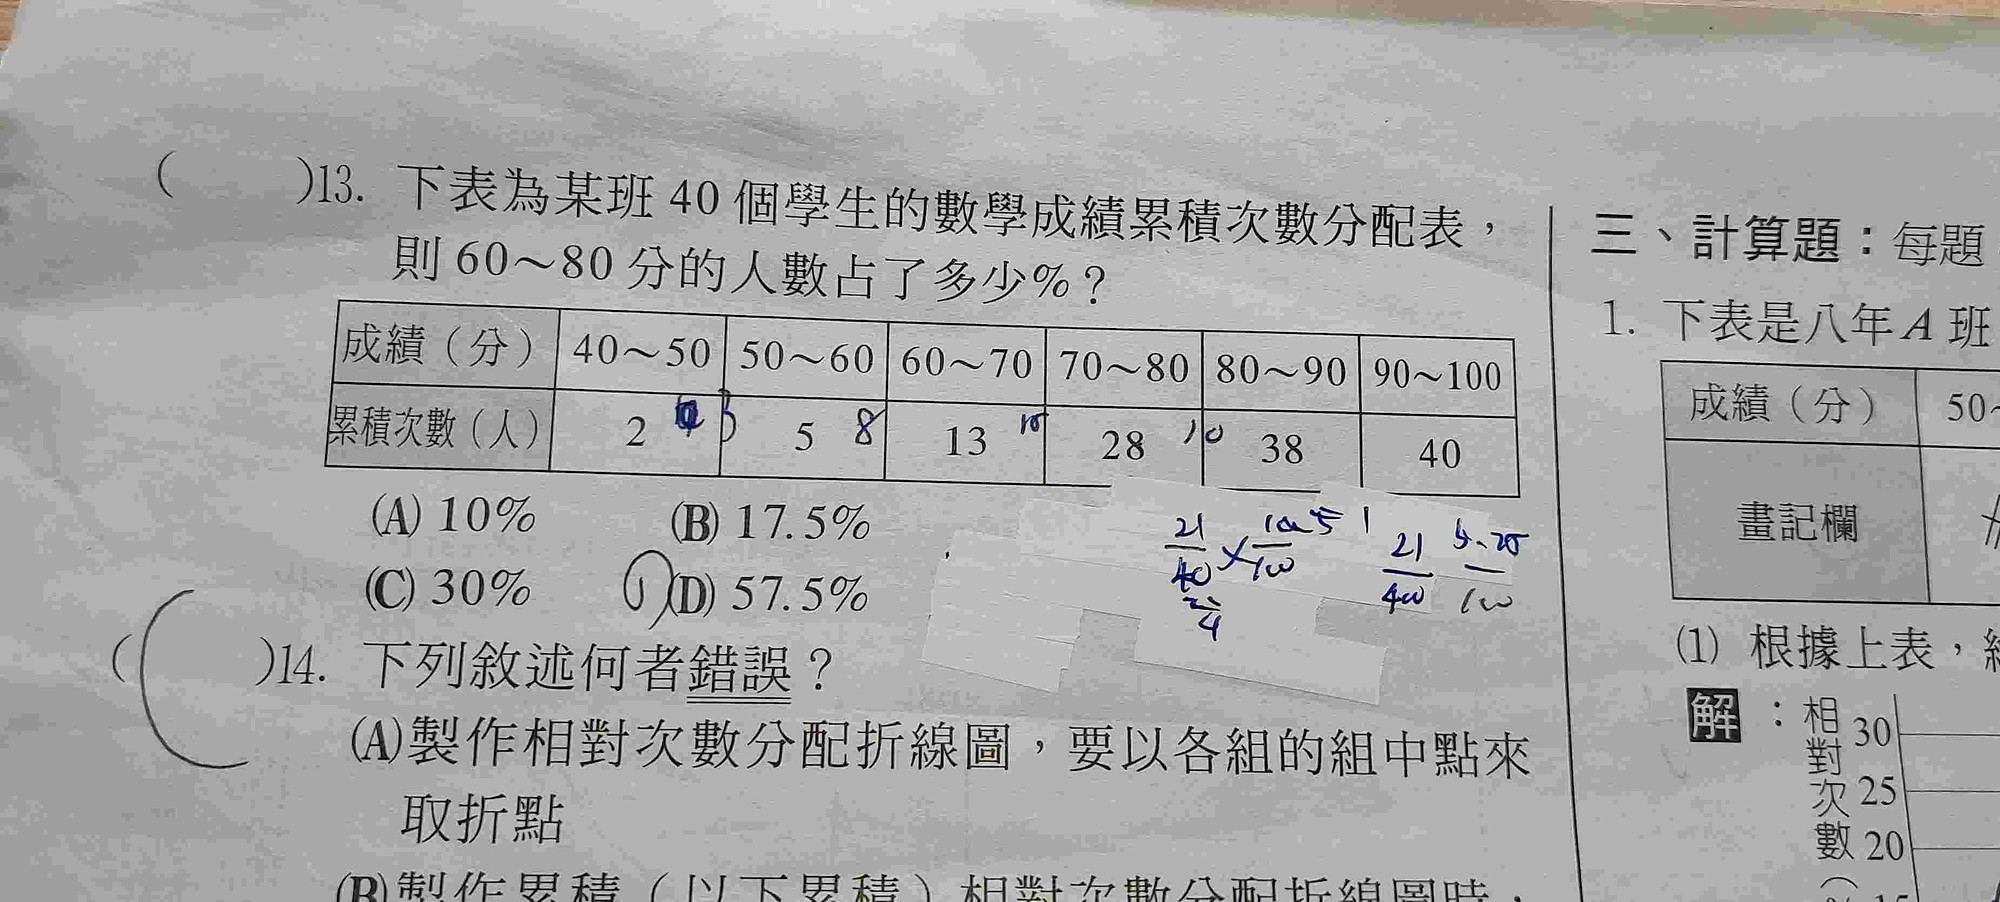 (　　)13. 下表為某班 40 個學生的數學成績累積次數分配表，
則 60～80 分的人數占了多少%？
成績（分） 40～50 50～60 60～70 70～80 80～90 90～100
累積次數（人） 2 5 8 13 15 28 10 38 40
(A) 10% (B) 17.5%
(C) 30% (D) 57.5%
21/40 × 100
21/400
(　　)14. 下列敘述何者錯誤？
(A)製作相對次數分配折線圖，要以各組的組中點來
取折點
(B)製作累積（以下累積）相對次數分配折線圖時，
三、計算題：每題
1. 下表是八年A 班
成績（分） 50~
畫記欄
(1) 根據上表，
解：相對次數
30
25
20
15